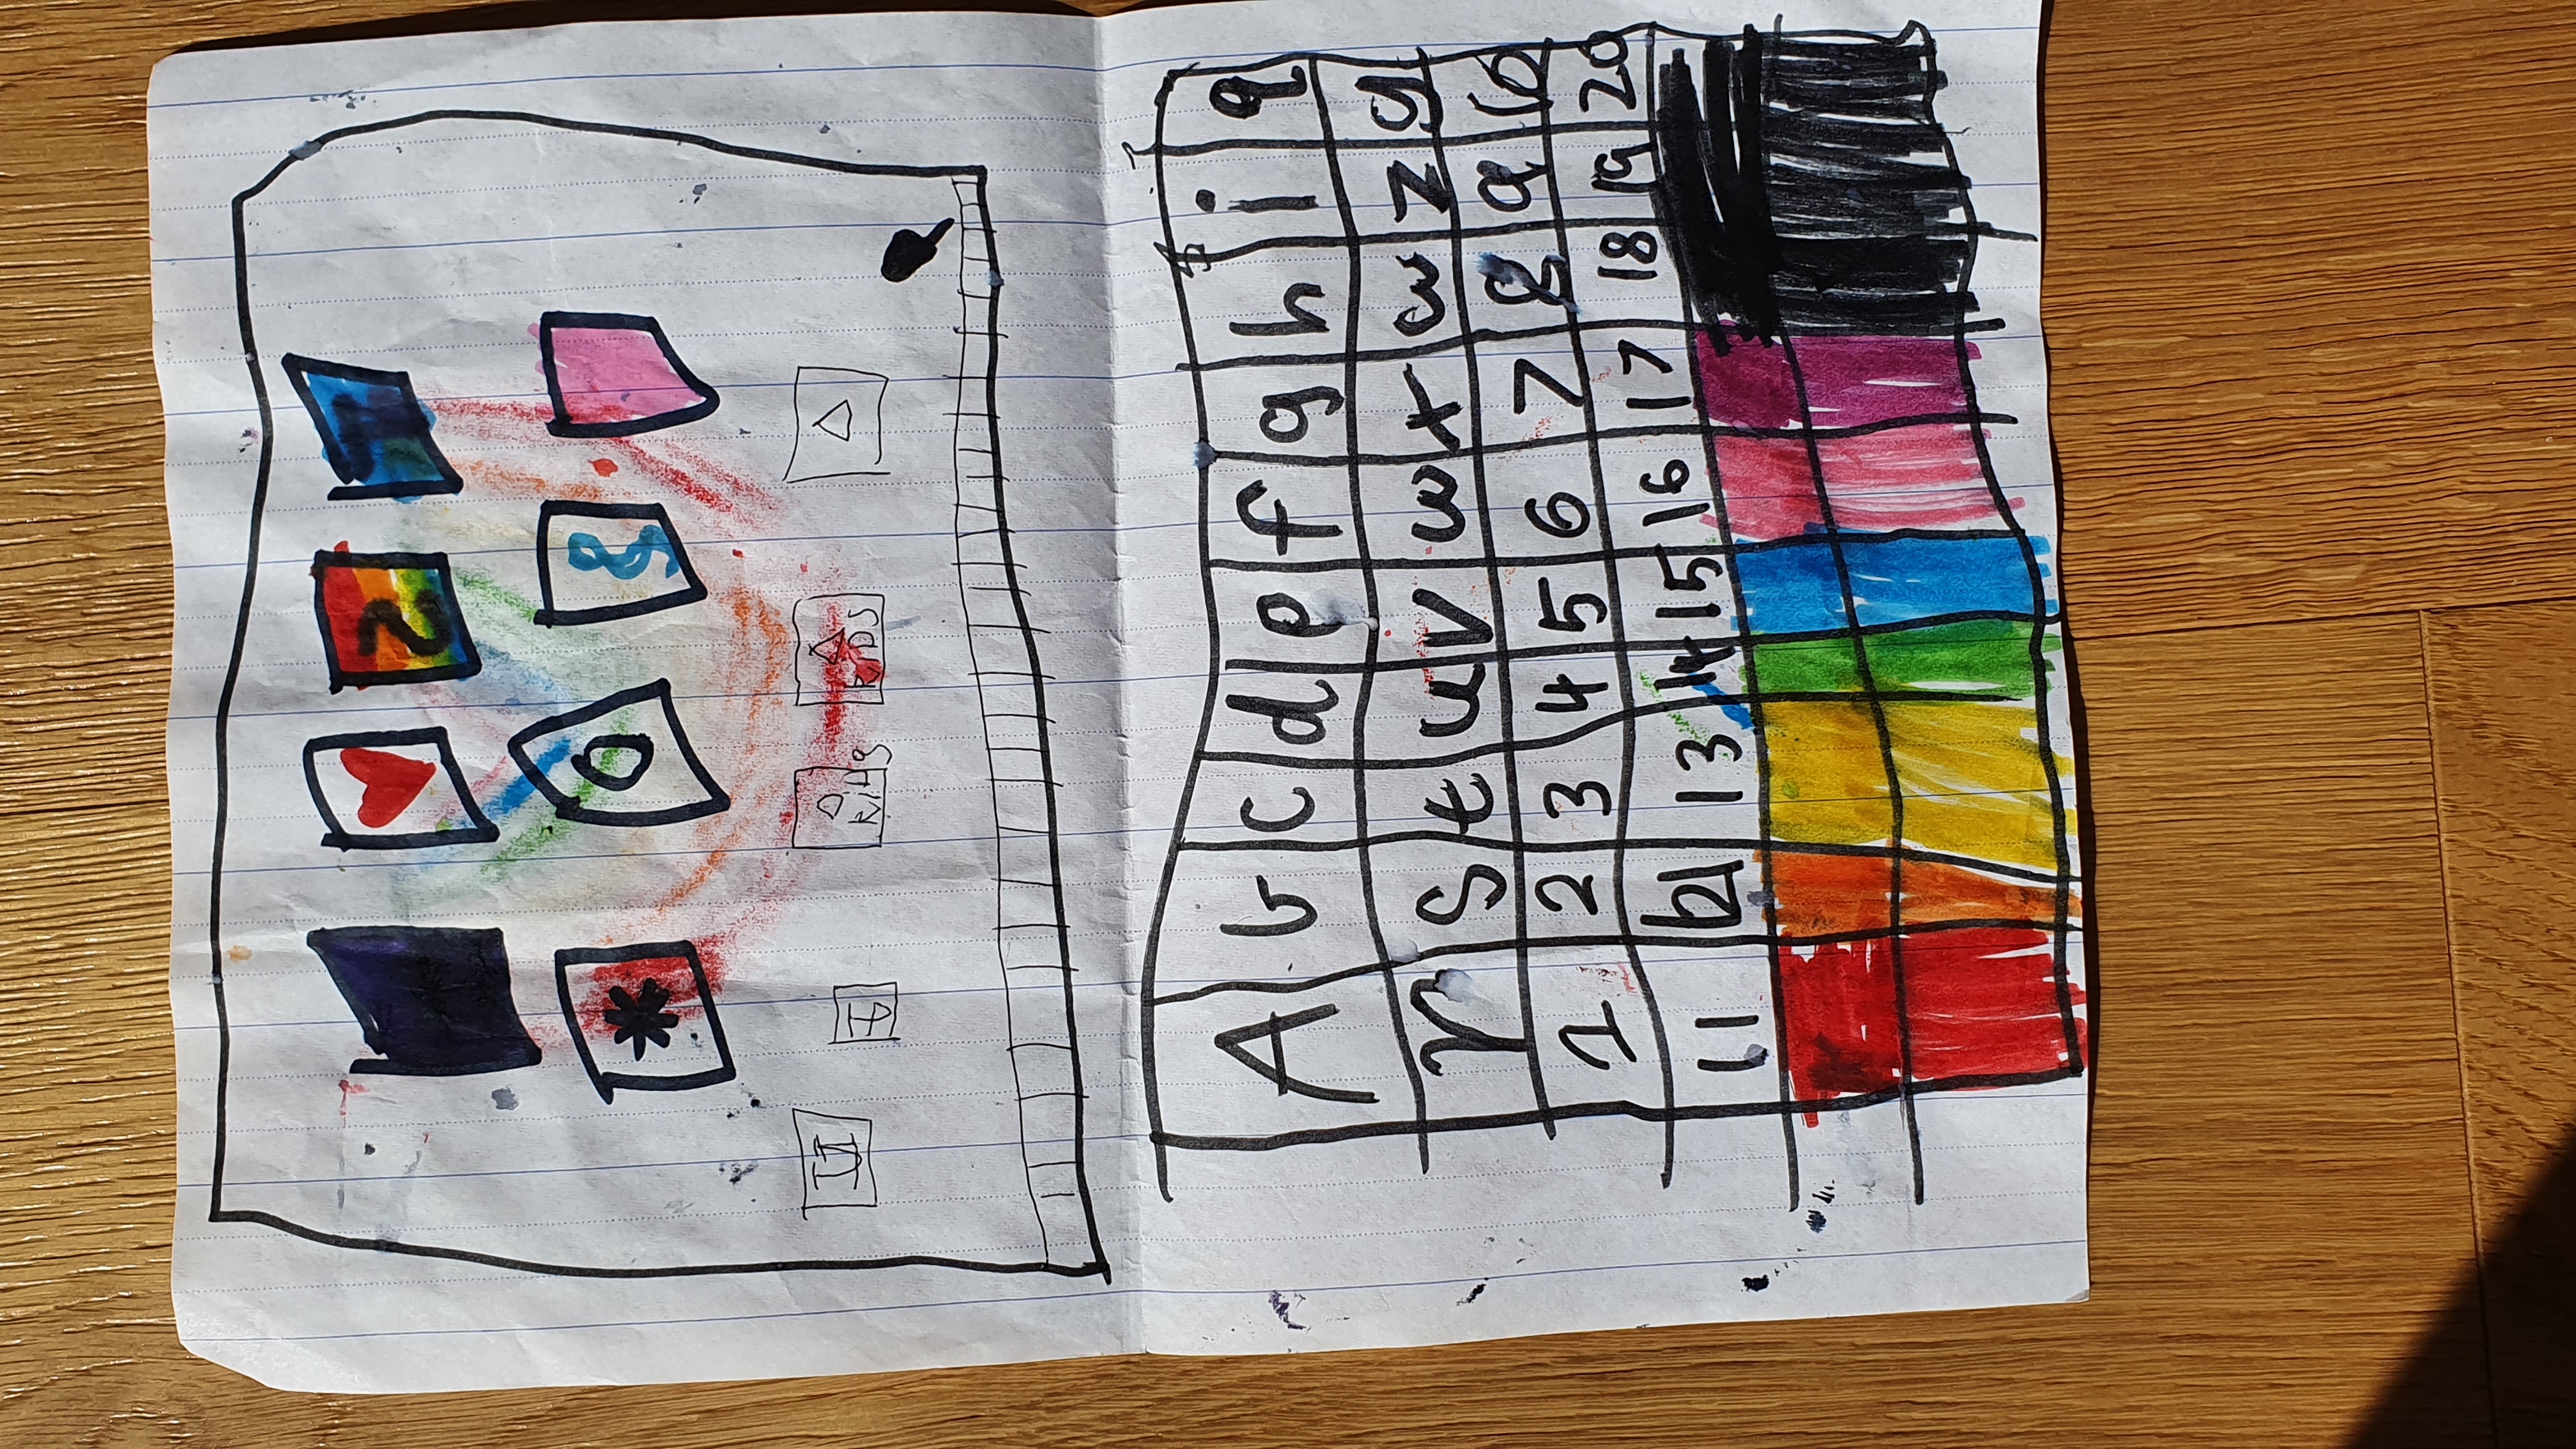 2
*
0
8
KIDS KIDS
A b c d e f g h i q
r s t u v w x w z y
1 2 3 4 5 6 7 8 9 10
11 12 13 14 15 16 17 18 19 20